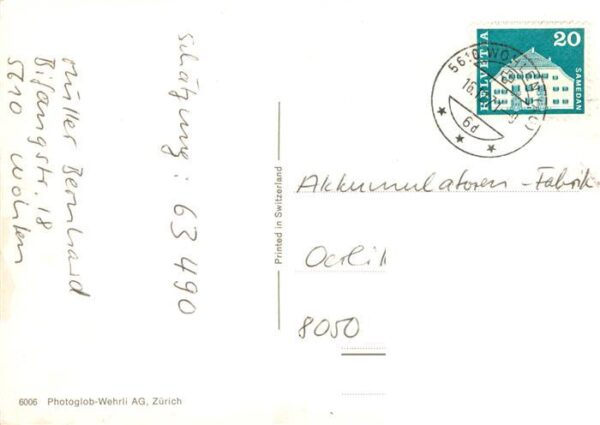 Müller Bernhard
Bifangstr. 18
5610 Wohlen
Schätzung: 63490
HELVETIA
20
SAMEDAN
5610 WOHLEN
6d
Printed in Switzerland
Akkumulatoren-Fabrik
Oerlik
8050
6006 Photoglob-Wehrli AG, Zürich